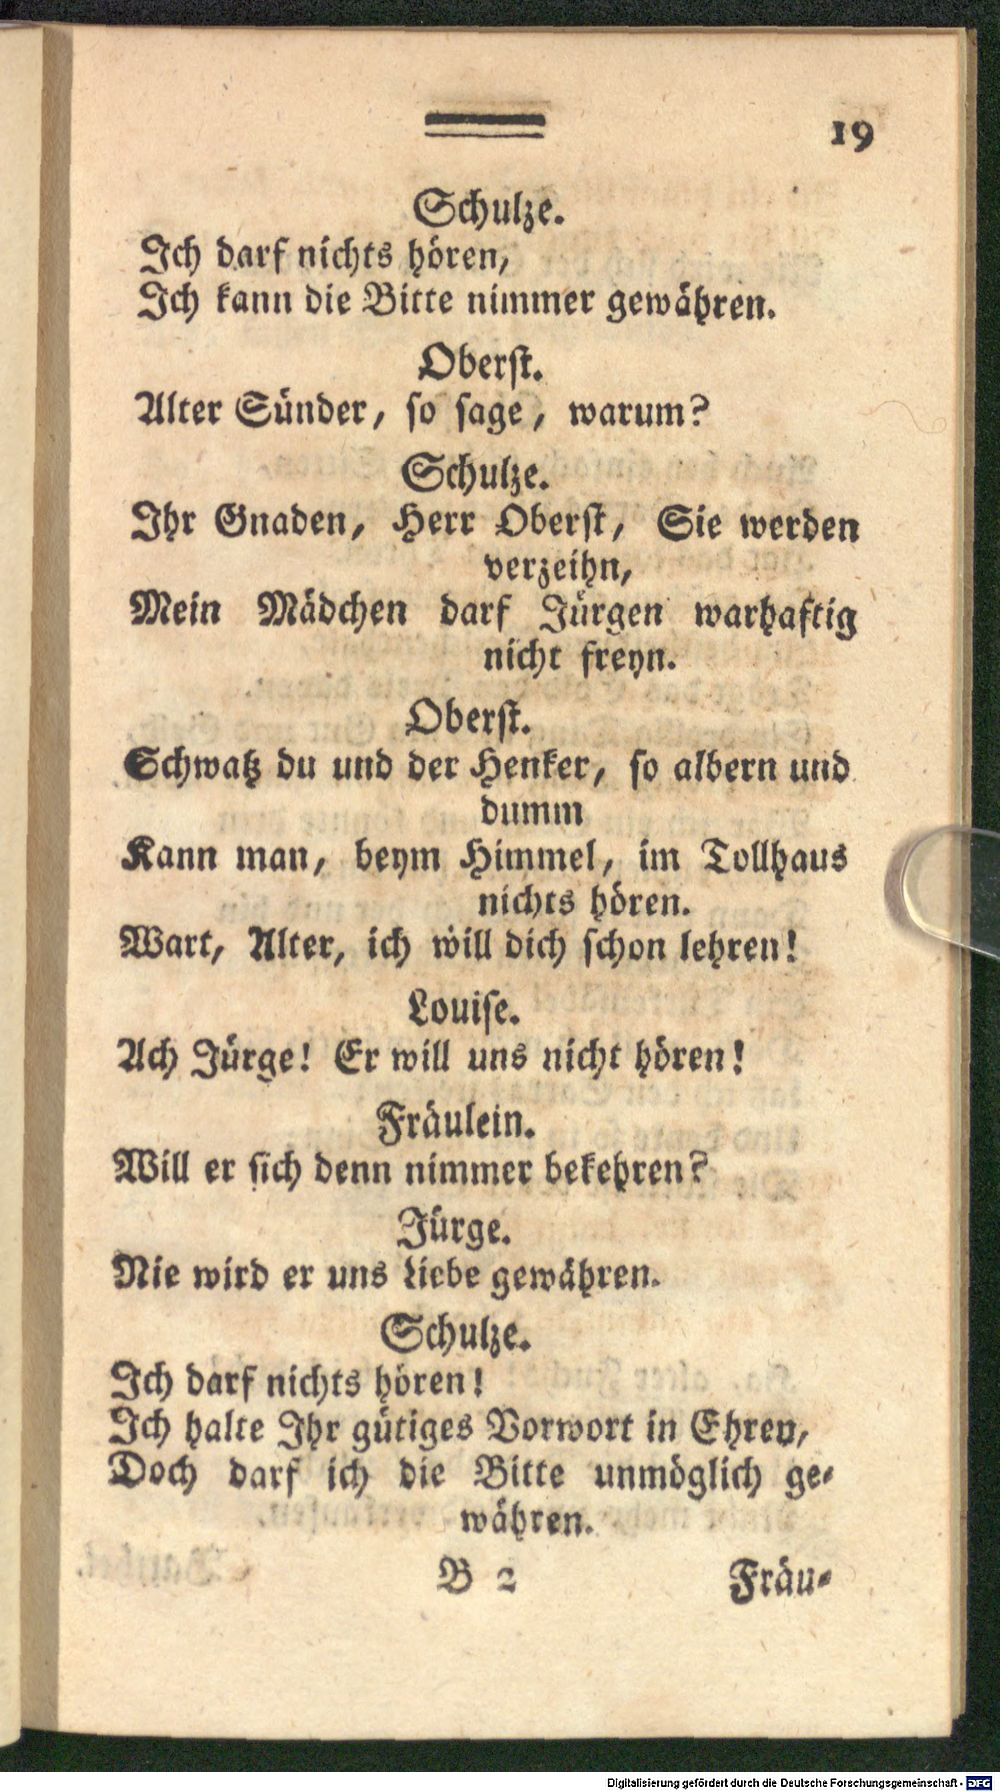 19
Schulze.
Ich darf nichts hören,
Ich kann die Bitte nimmer gewähren.
Oberst.
Alter Sünder, so sage, warum?
Schulze.
Ihr Gnaden, Herr Oberst, Sie werden
verzeihn,
Mein Mädchen darf Jürgen warhaftig
nicht freyn.
Oberst.
Schwatz du und der Henker, so albern und
dumm
Kann man, beym Himmel, im Tollhaus
nichts hören.
Wart, Alter, ich will dich schon lehren!
Louise.
Ach Jürge! Er will uns nicht hören!
Fräulein.
Will er sich denn nimmer bekehren?
Jürge.
Nie wird er uns Liebe gewähren.
Schulze.
Ich darf nichts hören!
Ich halte Ihr gütiges Vorwort in Ehren,
Doch darf ich die Bitte unmöglich ge-
währen.
B 2 Fräu-
Digitalisierung gefördert durch die Deutsche Forschungsgemeinschaft - DFG